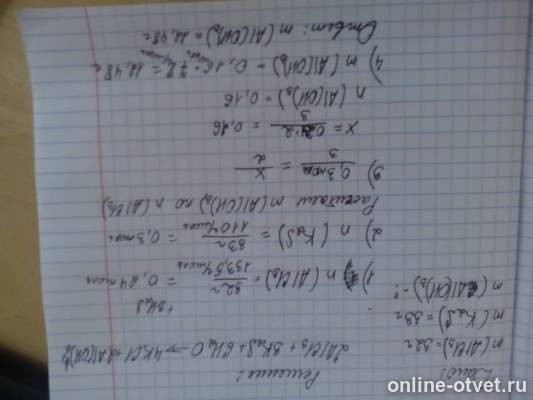 Дано:
m(AlCl₃)=32г
m(K₂S)=33г
m(Al(OH)₃)-?
Решение:
2AlCl₃+3K₂S+6H₂O→
+3H₂S
1) n(AlCl₃)= 32г / 133,5г/моль = 0,24моль
2) n(K₂S)= 33г / 110г/моль = 0,3моль
m(Al(OH)₃) по n(AlCl₃)
3) 0,3моль / 3 = x / 2
x= / 3 = 0,16
n(Al(OH)₃)=0,16
4) m(Al(OH)₃)=0,16 = 12,48г
Ответ: m(Al(OH)₃)=12,48г
online-otvet.ru